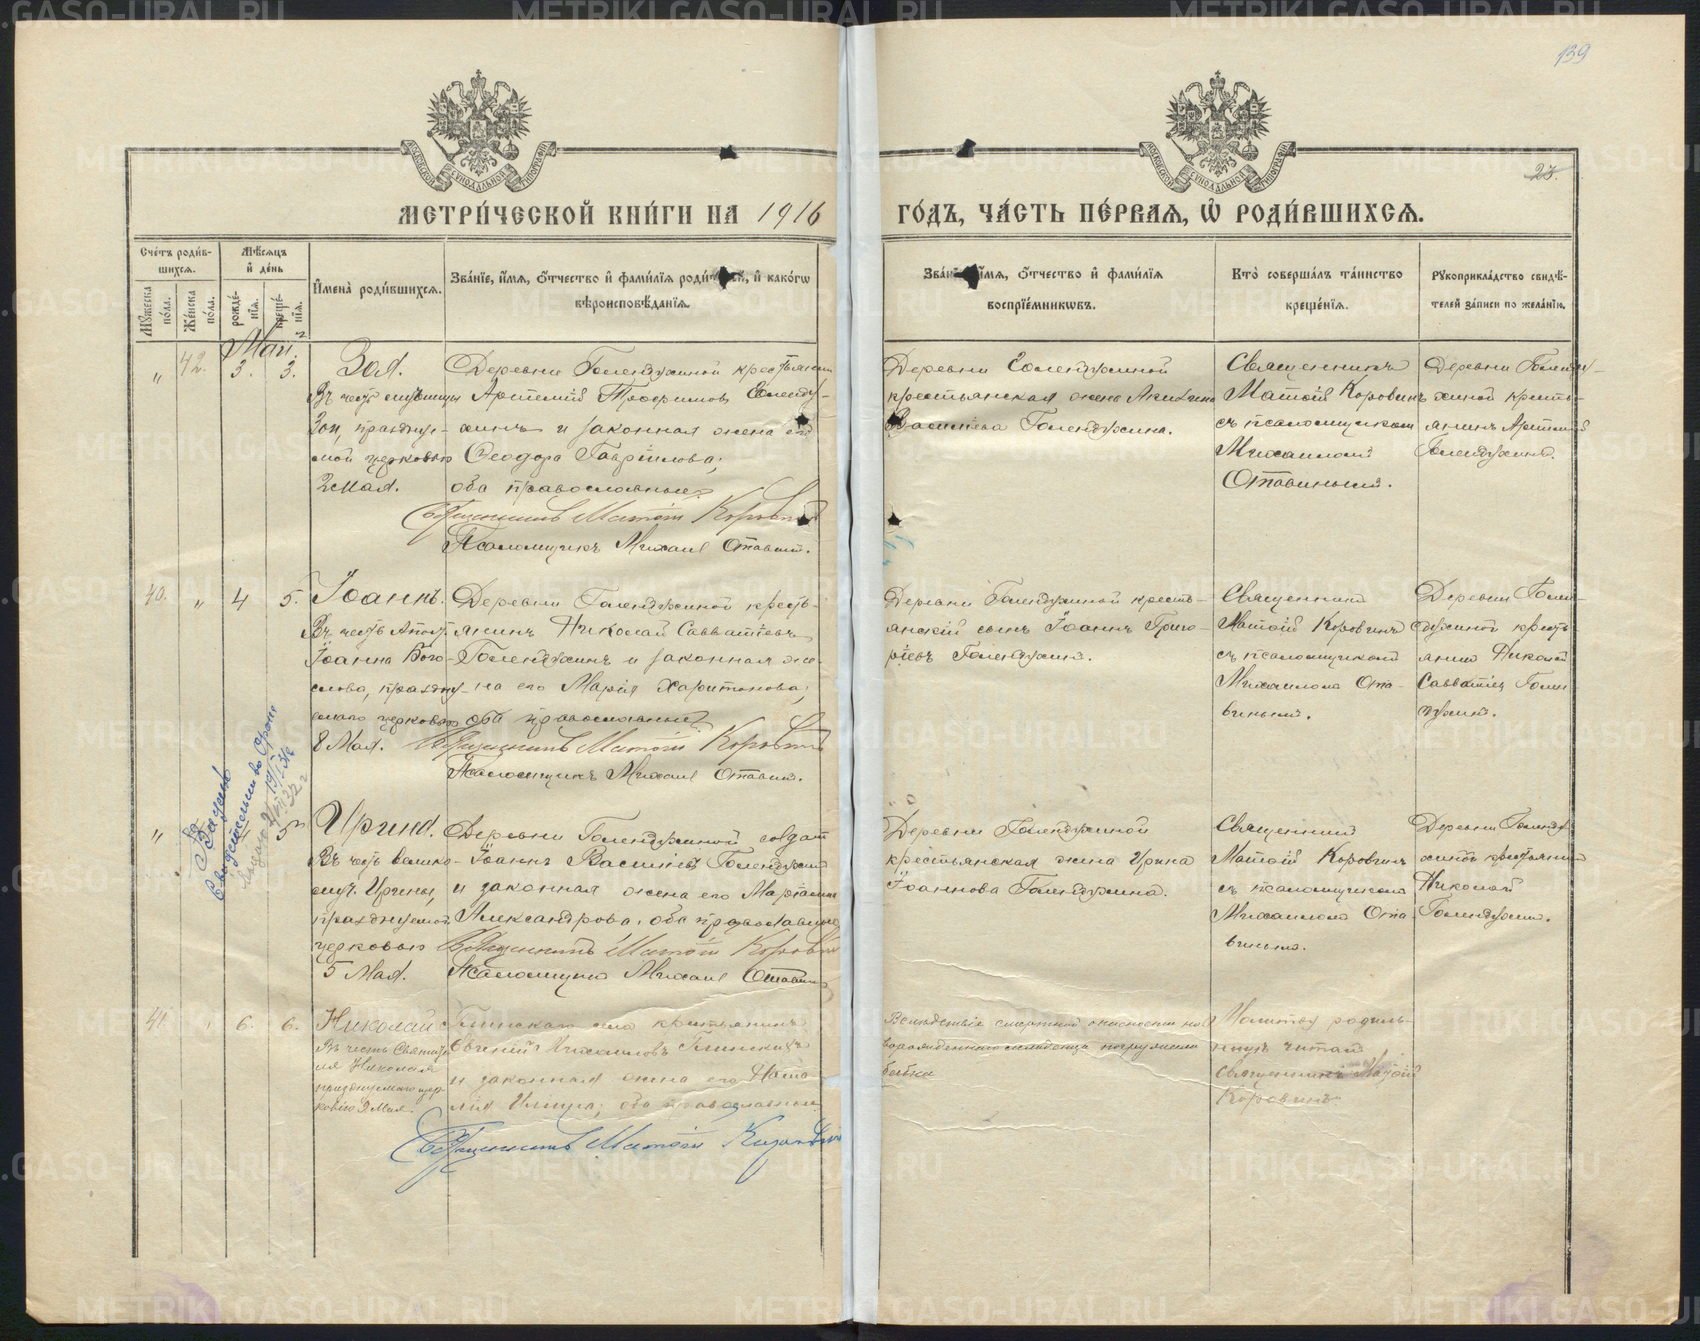 139
23.
МЕТРИ́ЧЕСКОЙ КНИ́ГИ НА 1916
ГО́ДЪ, ЧА́СТЬ ПЕ́РВАЯ, Ѡ҆ РОДИ́ВШИХСЯ.
Счетъ роди́в-
шихся.
Мꙋ́жеска по́ла.
Же́нска по́ла.
Мѣ́сяцъ
и҆ де́нь
рожде́нїя.
креще́нїя.
И҆мена̀ роди́вшихся.
Зва́нїе, и҆́мя, ѻ҆́тчество и҆ фами́лїя роди́телей, и҆ како́гѡ
вѣроисповѣ́данїя.
Зва́нїе, и҆́мя, ѻ҆́тчество и҆ фами́лїя
воспрїе́мникѡвъ.
Кто̀ соверша́лъ та́инство
креще́нїя.
Рꙋкоприкла́дство свидѣ́-
телей за́писи по жела́нїю.
Май.
" 42. 3. 3.
Зоя.
Въ честь мученицы
Зои, праздну-
мой церковью
2 мая.
Деревни Голендухиной крестьянинъ
Артемій Трофимовъ Голенду-
хинъ и законная жена его
Ѳеодора Гаврілова;
оба православные.
Священникъ Матѳій Коровинъ
Псаломщикъ Михаил Отавин.
Деревни Голендухиной
крестьянская жена Акилина
Васильева Голендухина.
Священникъ
Матѳій Коровинъ
съ псаломщикомъ
Михаиломъ
Отавинымъ.
Деревни Голенду-
хиной кресть-
янинъ Артемій
Голендухинъ.
40. " 4 5.
Іоаннъ.
Въ честь Апост.
Іоанна Бого-
слова, праздну-
емаго церковью
8 Мая.
Деревни Голендухиной кресть-
янинъ Николай Савватіевъ
Голендухинъ и законная же-
на его Марія Харитонова;
оба православные
Священникъ Матѳій Коровинъ
Псаломщикъ Михаил Отавин.
Деревни Голендухиной кресть-
янскій сынъ Іоаннъ Григо-
ріевъ Голендухин.
Священникъ
Матѳій Коровинъ
съ псаломщикомъ
Михаиломъ Ота-
винымъ.
Деревни Голен-
духиной кресть-
янин Николай
Савватіев Голен-
духин.
"
Ирина.
Въ честь велико-
муч. Ирины,
празднуемой
церковью
5 Мая.
Деревни Голендухиной солдат
Іоаннъ Васильевъ Голендухин
и законная жена его
Александрова, оба православные
Священникъ Матѳій Коровинъ
Псаломщикъ Михаил Отавин
Деревни Голендухиной
крестьянская жена Ирина
Іоаннова Голендухина.
Священникъ
Матѳій Коровинъ
съ псаломщикомъ
Михаиломъ Ота-
винымъ.
Деревни Голенду-
хиной крестьянин
Николай
Голендухин.
41. " 6. 6.
Николай
Въ честь Святите-
ля Николая
празднуемаго цер-
ковію 9 Мая.
Глинскаго села крестьянинъ
Евгеній Михаиловъ Глинскихъ
и законная жена его Ната-
лія Ильина; оба православные.
Священникъ Матѳій Коровинъ
Вслѣдствіе смертной опасности но-
ворожденнаго младенца погружала
бабка
Молитву родиль-
ницѣ читал
Священникъ Матѳій
Коровинъ.